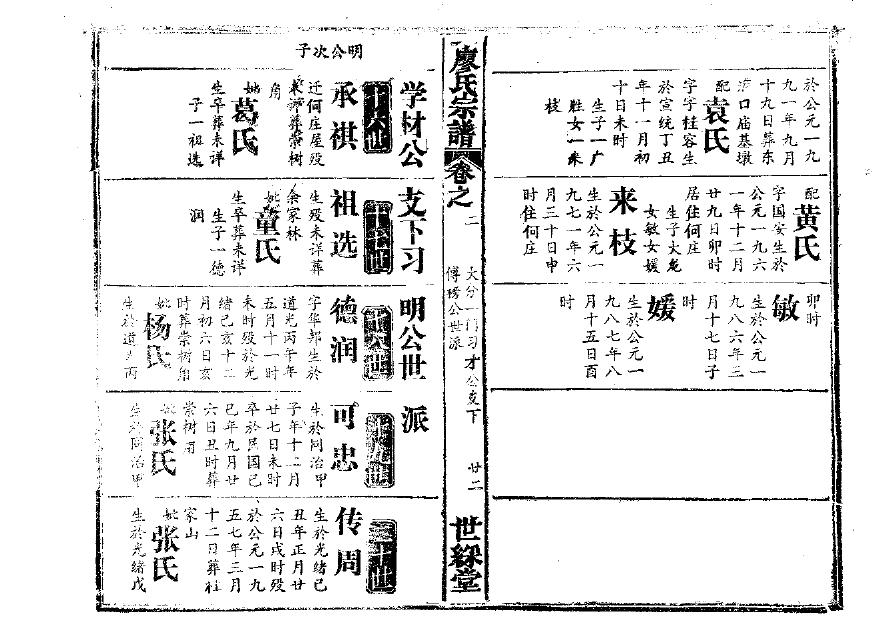 於公元一九
九一年九月
十九日葬东
口庙基墩
配袁氏
字字桂容生
於宣统丁丑
年十一月初
十日未时
生子一广
胜女一来
枝
配黄氏
字国安生於
公元一九六
一年十二月
廿九日卯时
居住何庄
生子大龙
女敏女媛
来枝
生於公元一
九七一年六
月三十日申
时住何庄
卯时
敏
生於公元一
九八六年三
月十七日子
时
媛
生於公元一
九八七年八
月十五日酉
时
廖氏宗谱 卷之二
大分一门习才公支下
传榜公世派
廿二
世綵堂
学材公支下习明公世派
明公次子
十六世
承祺
迁何庄屋殁
未详葬崇树
角
妣葛氏
生卒葬未详
子一祖选
十七世
祖选
生殁未详葬
余家林
妣童氏
生卒葬未详
生子一德
润
十八世
德润
字华邦生於
道光丙午年
五月十一时
未时殁於光
绪己亥十二
月初六日亥
时葬崇树角
妣杨氏
生於道光丙
十九世
可忠
生於同治甲
子年十二月
廿七日未时
卒於民国己
巳年九月廿
六日丑时葬
崇树角
妣张氏
生於同治甲
二十世
传周
生於光绪己
丑年正月廿
六日戌时殁
於公元一九
五七年三月
十二日葬社
家山
妣张氏
生於光绪戊